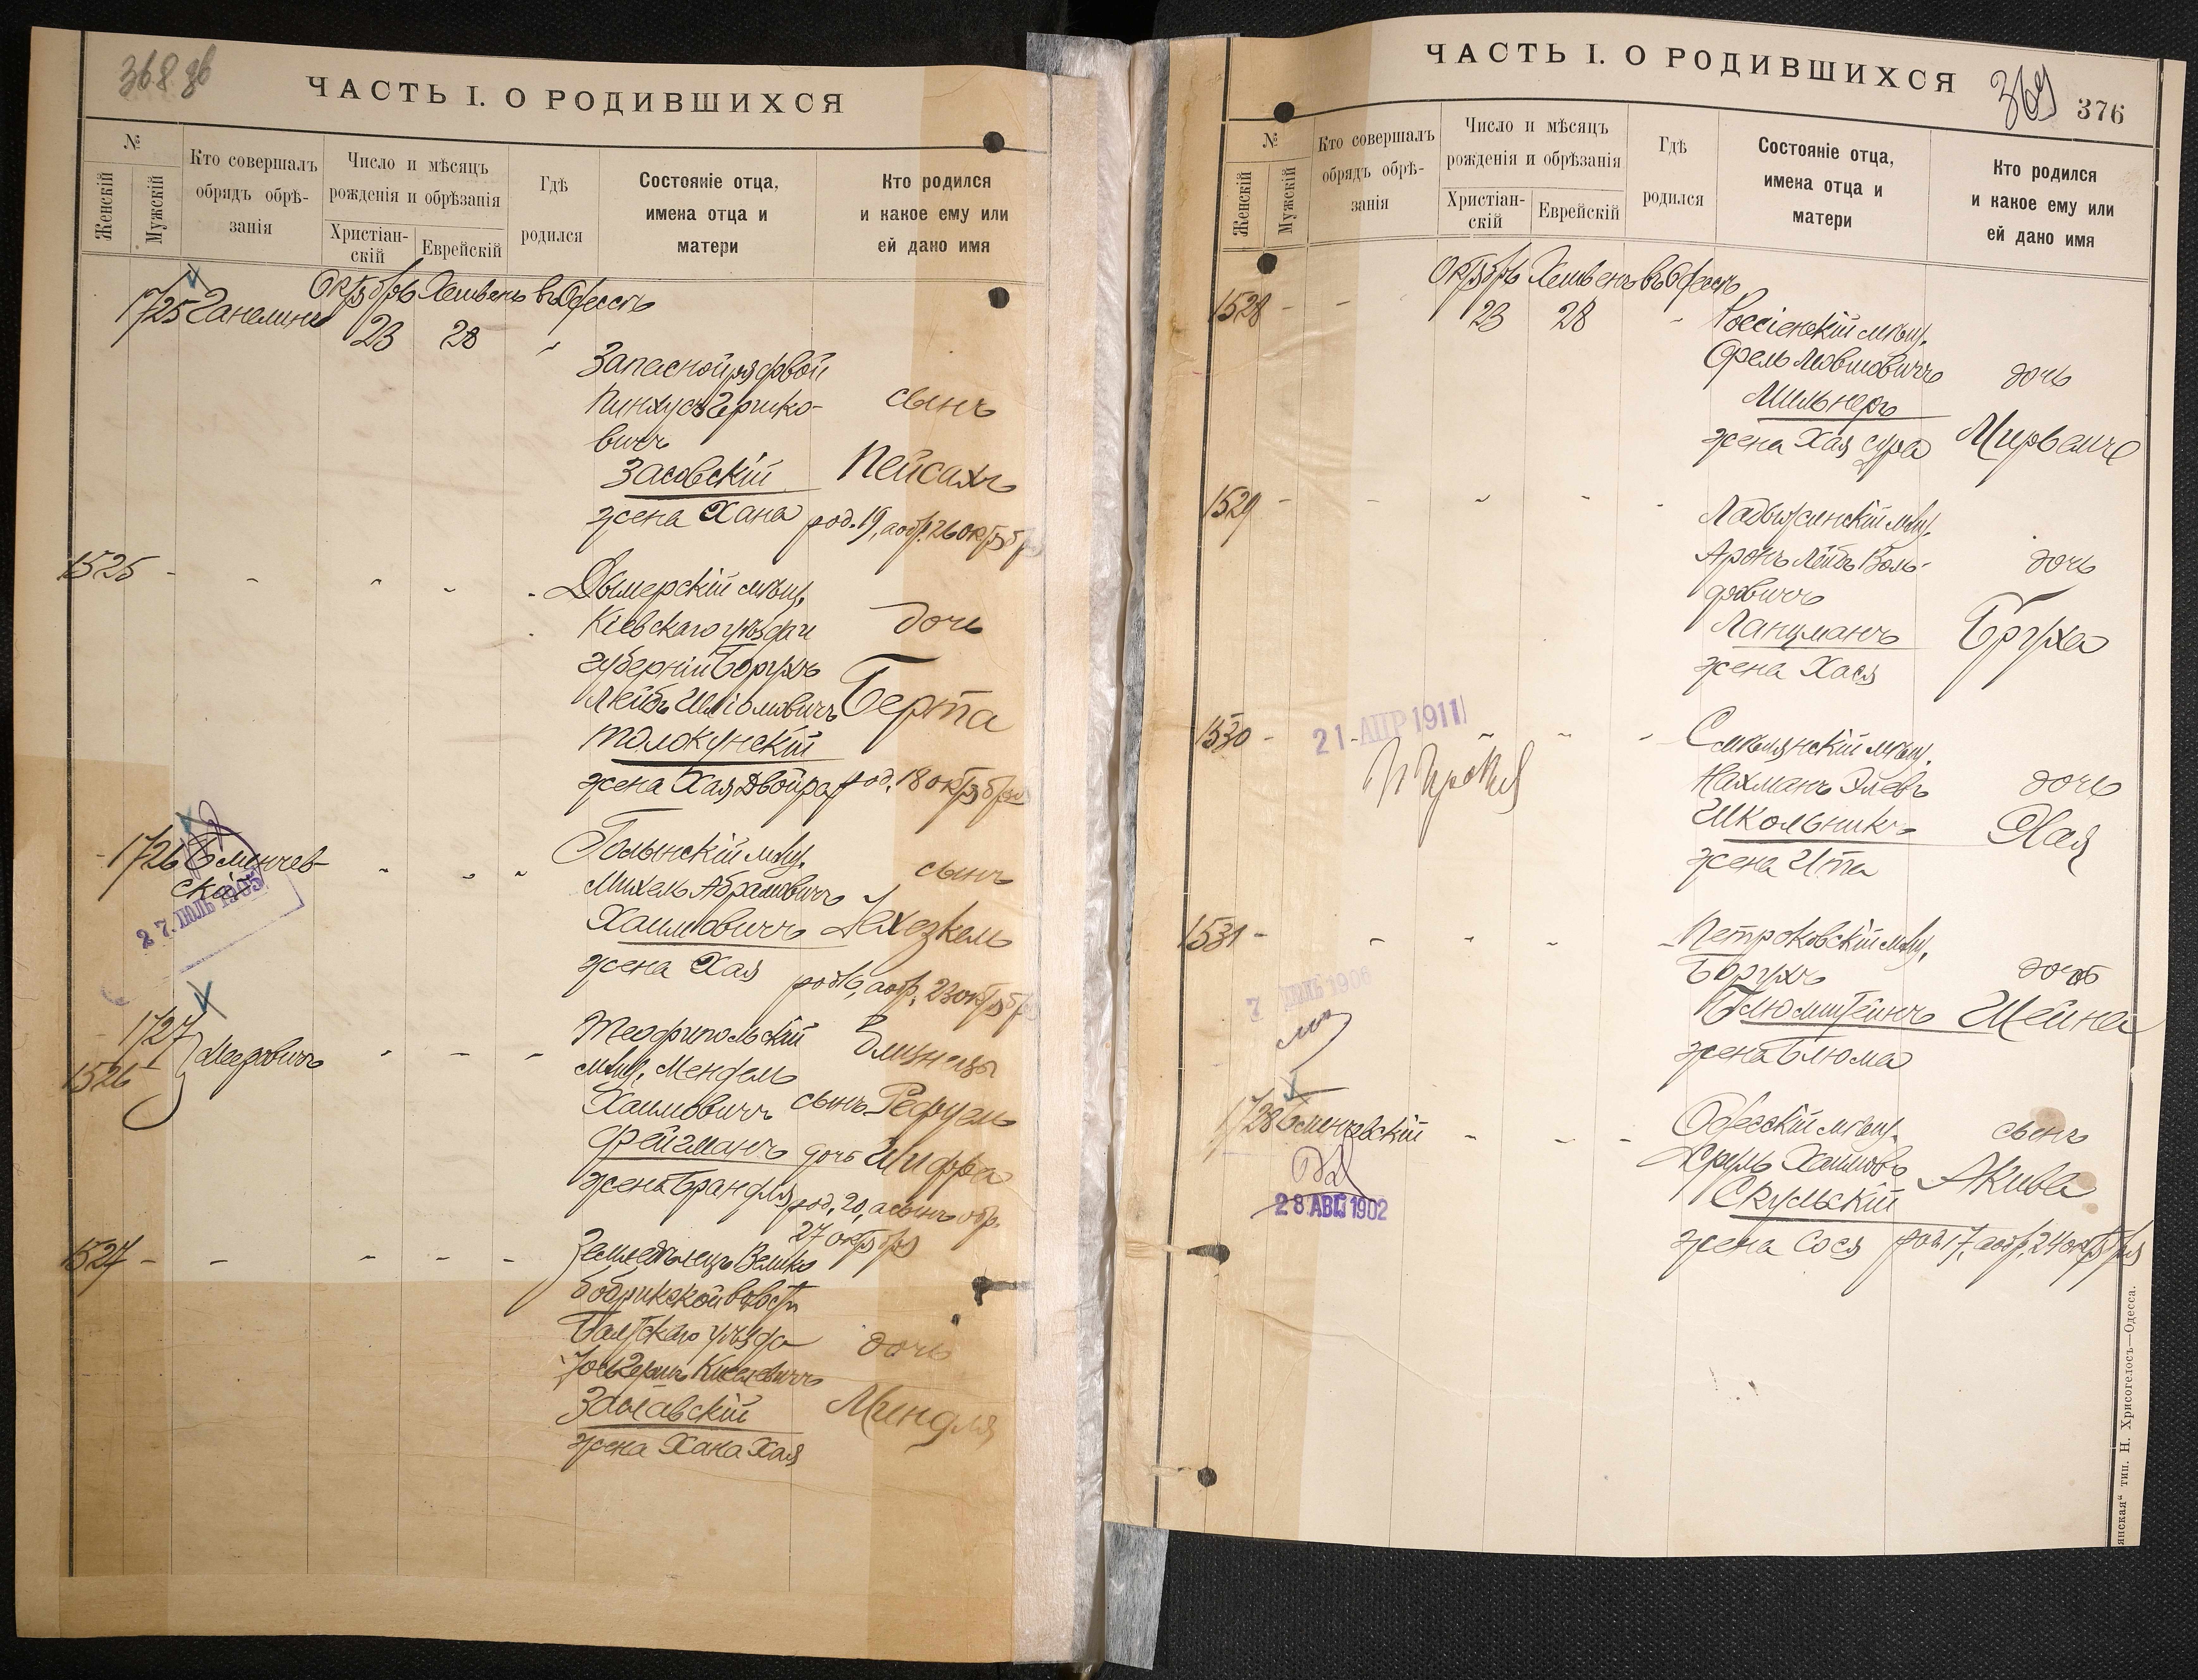 368 об
ЧАСТЬ I. О РОДИВШИХСЯ
№
Женскій
Мужскій
Кто совершалъ
обрядъ обрѣ-
занія
Число и мѣсяцъ
рожденія и обрѣзанія
Христіан-
скій
Еврейскій
Гдѣ
родился
Состояніе отца,
имена отца и
матери
Кто родился
и какое ему или
ей дано имя
Октября Хешвенъ въ Одессѣ
1725 Ганелинъ 23 28 "
Запасной рядовой
Пинхусъ Гершко-
вичъ
сынъ
Засовскій
Пейсахъ
жена Хана
род. 19, а обр. 26 октября
1525 - - " - -
Дымерскій мѣщ.
Кіевскаго уѣзда и
дочь
губерніи Борухъ
Лейбъ Шліомовичъ
Берта
Толокунскій
жена Хая Двойра
род. 18 октября
1726 Блинчев-
скій
27 ІЮЛЬ 1905
Голынскій мѣщ.
сынъ
Михель Абрамовичъ
Хаимовичъ
Іехезкель
жена Хая
род 16, а обр. 23 октября
1727
1526
Мееровичъ
Теофипольскій
Близнецы
мѣщ. Мендель
Хаимовичъ
сынъ Рефуель
Фейгманъ
дочь Шифра
жена Брандля
род. 20, а сынъ обр.
27 октября
1527 - - - - -
Земледѣлецъ Велико
бобрикской волости
Балтскаго уѣзда
дочь
Заславскій
Миндля
жена Хана Хая
ЧАСТЬ I. О РОДИВШИХСЯ
369
376
№
Женскій
Мужскій
Кто совершалъ
обрядъ обрѣ-
занія
Число и мѣсяцъ
рожденія и обрѣзанія
Христіан-
скій
Еврейскій
Гдѣ
родился
Состояніе отца,
имена отца и
матери
Кто родился
и какое ему или
ей дано имя
Октябрь Хешвенъ въ Одессѣ
1528 - - 23 28 -
Россіенскій мѣщ.
дочь
Мильнеръ
жена Хая Сура
1529 - - " -
Ладыжинскій мѣщ.
Аронъ Лейбъ Воль-
дочь
фовичъ
Ланцманъ
Бруха
жена Хася
1530 -
21 АПР 1911
Нахманъ Элевъ
дочь
Школьникъ
Хая
жена Ита
1531 - - - - -
Петроковскій мѣщ.
Борухъ
дочь
Блюмштейнъ
Шейна
жена Блюма
7 1906
1728 Блинчевскій - - -
28 АВГ 1902
Одесскій мѣщ.
сынъ
Сруль Хаимовъ
Акива
Скульскій
жена Сося
род 17, а обр. 24 октября
янская“ тип. Н. Хрисогелосъ—Одесса.